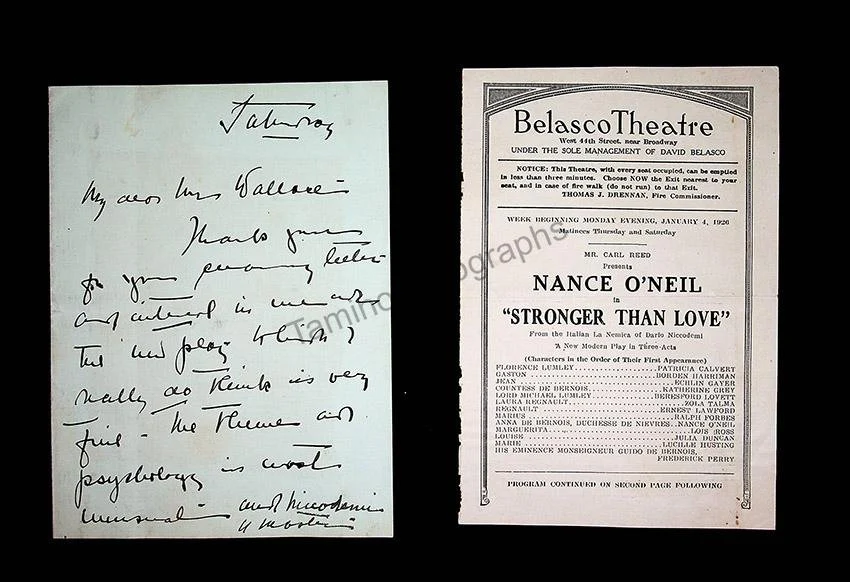 Saturday
My dear Mrs Wallace -
Thank you
for your charming letter
and interest in me and
the new play which I
really do think is very
fine - the theme and
psychology is most
unusual - and Niccodemi
a master
Belasco Theatre
West 44th Street, near Broadway
UNDER THE SOLE MANAGEMENT OF DAVID BELASCO
NOTICE: This Theatre, with every seat occupied, can be emptied
in less than three minutes. Choose NOW the Exit nearest to your
seat, and in case of fire walk (do not run) to that Exit.
THOMAS J. DRENNAN, Fire Commissioner.
WEEK BEGINNING MONDAY EVENING, JANUARY 4, 1926
Matinees Thursday and Saturday
MR. CARL REED
Presents
NANCE O'NEIL
in
"STRONGER THAN LOVE"
From the Italian La Nemica of Dario Niccodemi
A New Modern Play in Three Acts
(Characters in the Order of Their First Appearance)
FLORENCE LUMLEY....................PATRICIA CALVERT
GASTON....................BORDEN HARRIMAN
JEAN....................ECHLIN GAYER
COUNTESS DE BERNOIS....................KATHERINE GREY
LORD MICHAEL LUMLEY....................BERESFORD LOVETT
LAURA REGNAULT....................ZOLA TALMA
REGNAULT....................ERNEST LAWFORD
MARIUS....................RALPH FORBES
ANNA DE BERNOIS, DUCHESSE DE NIEVRES..NANCE O'NEIL
MARGUERITA....................LOIS ROSS
LOUISE....................JULIA DUNCAN
MARIE....................LUCILLE HUSTING
HIS EMINENCE MONSEIGNEUR GUIDO DE BERNOIS,
FREDERICK PERRY
PROGRAM CONTINUED ON SECOND PAGE FOLLOWING
Tamino Autographs